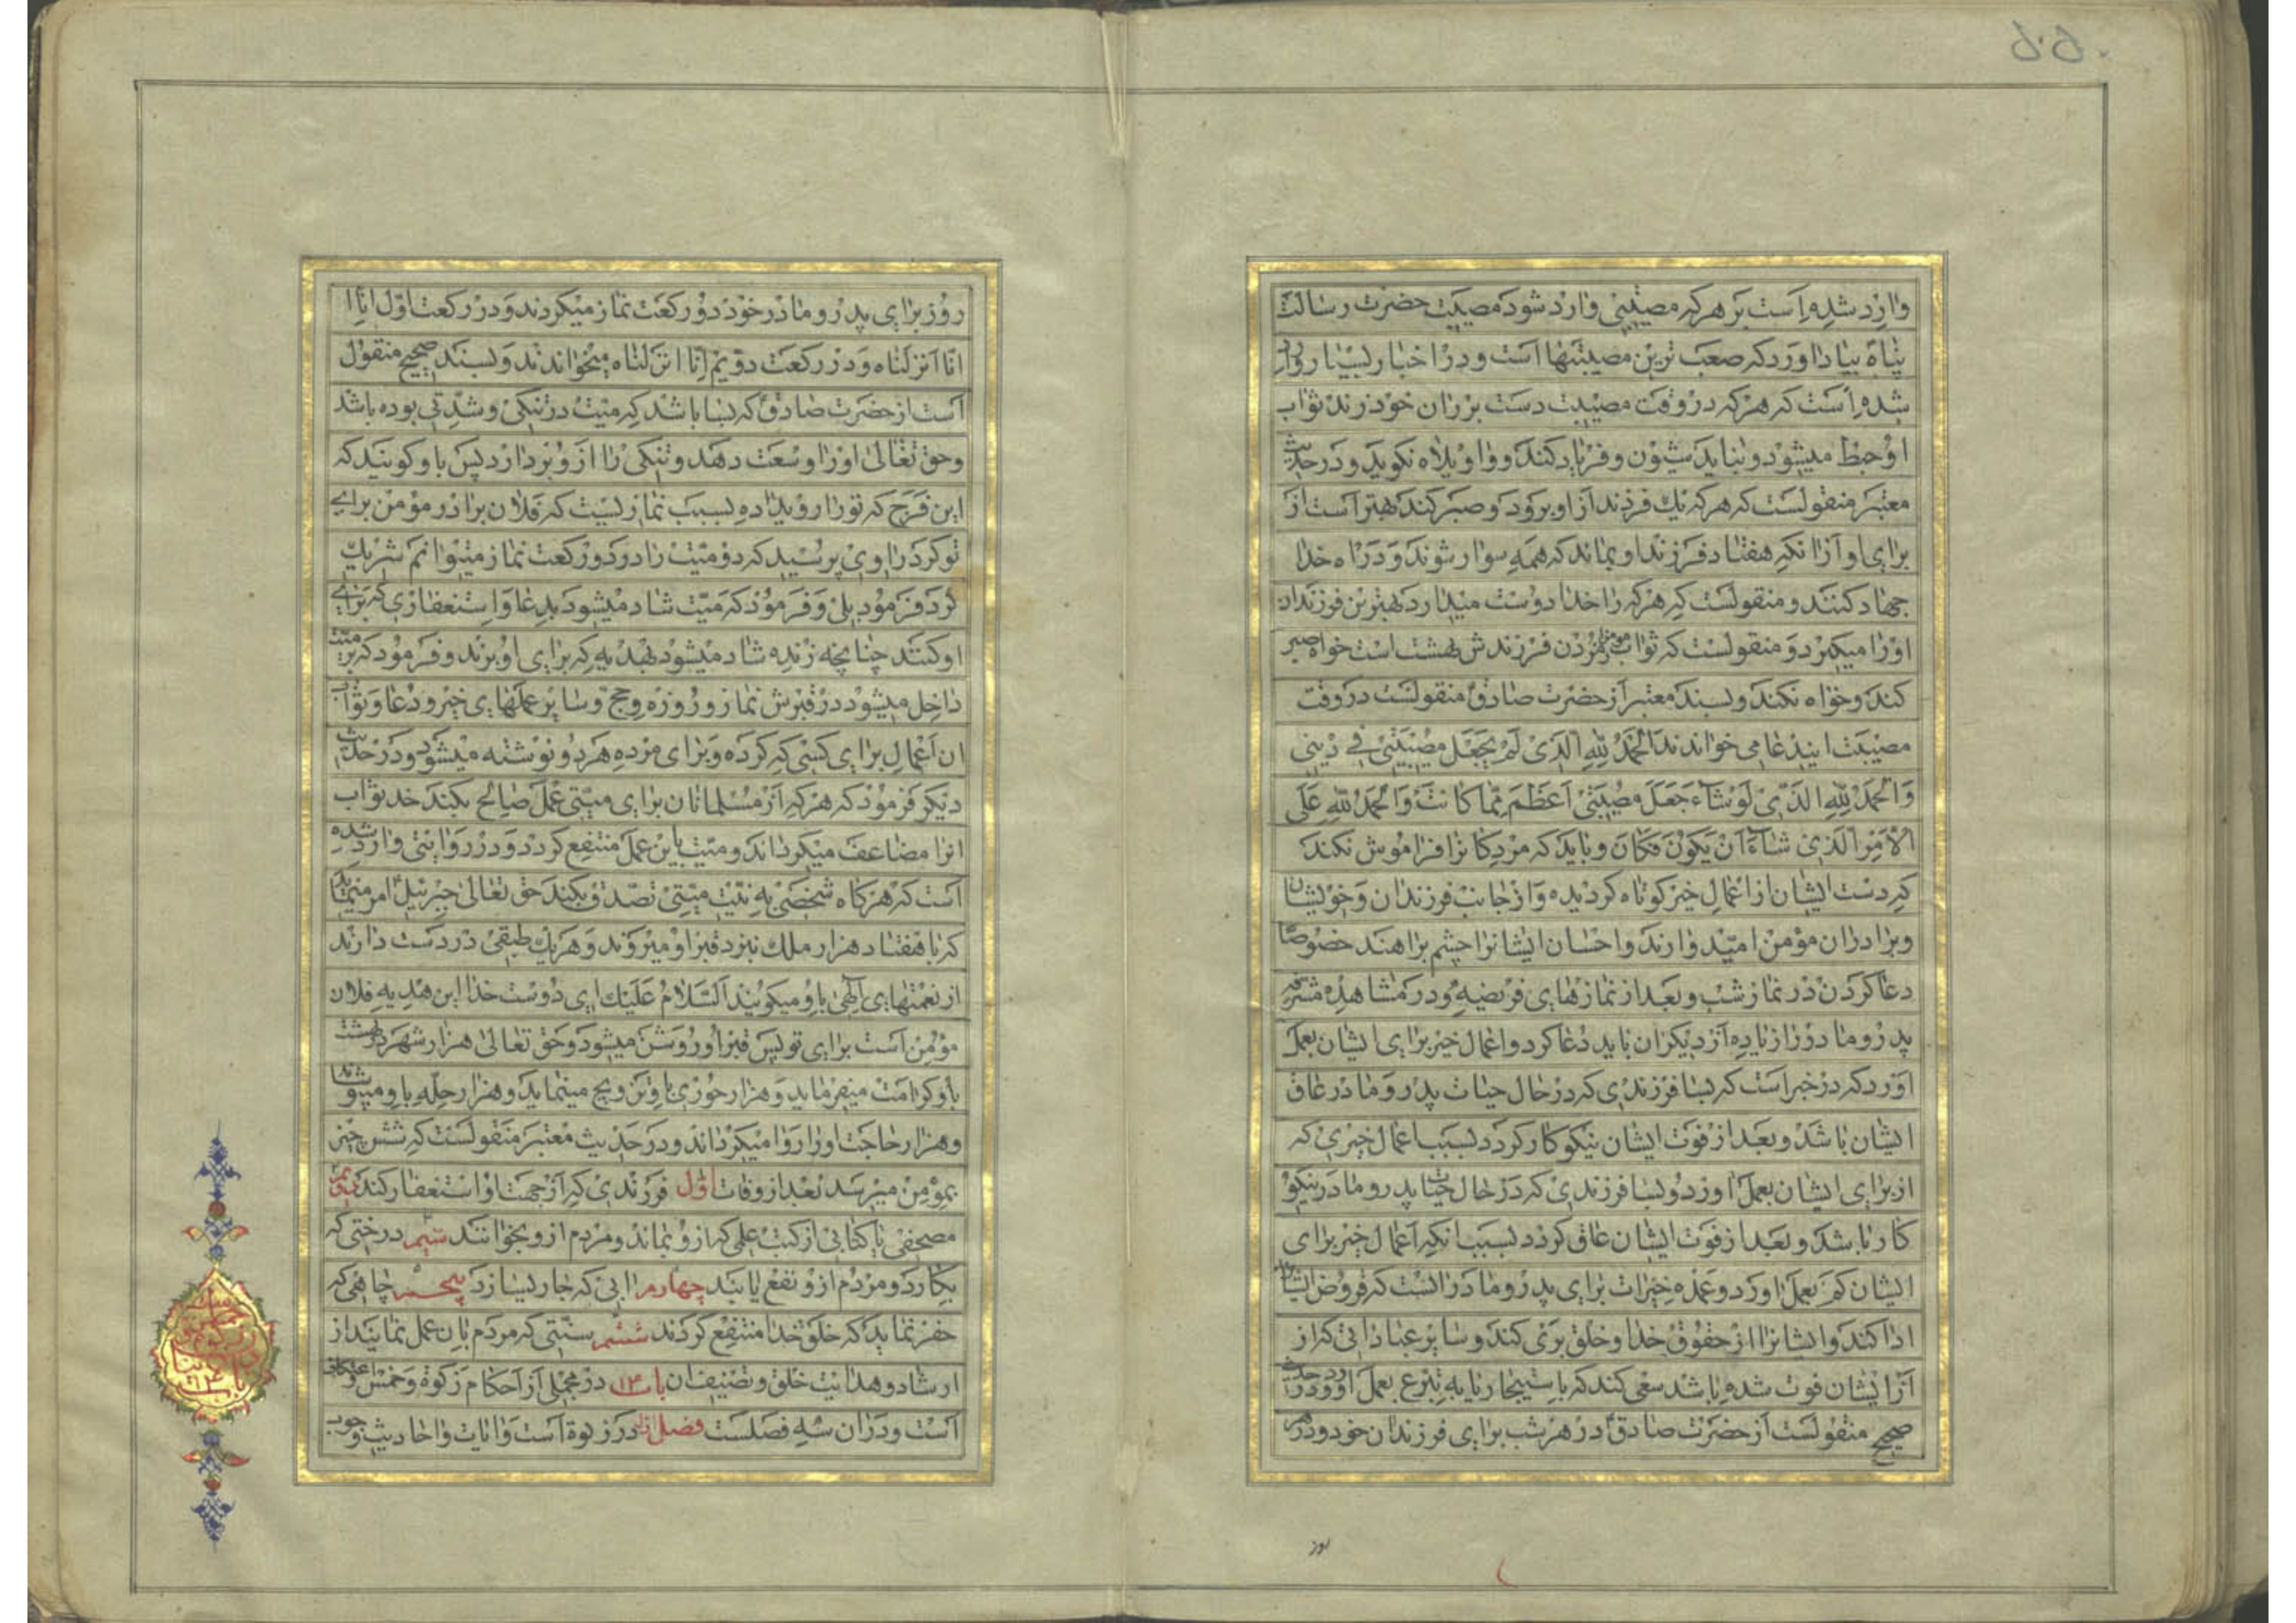 وارد شده است بر هر که مصیبتی وارد شود مصیبت حضرت رسالت
پناه بیاد اورد که صعب ترین مصیبتها است و در اخبار بسیار وارد
شده است که هرکه در وقت مصیبت دست بر ران خود زند ثواب
او حبط میشود و نباید شیون و فریاد کند و وا ویلاه نکوید و در حدیث
معتبر منقولست که هرکه یك فرزند از او برود و صبر کند بهتر است از
برای او از انکه هفتاد فرزند او بماند که همه سوار شوند و در راه خدا
جهاد کنند و منقولست که هرکه را خدا دوست میدارد بهترین فرزندان
اورا میکیرد و منقولست که ثواب مؤمن بمردن فرزندش بهشت است خواه صبر
کند و خواه نکند و بسند معتبر از حضرت صادق منقولست در وقت
مصیبت ایندعا می خواندند الحمد لله الذی لم یجعل مصیبتی فی دینی
والحمد لله الذی لو شاء جعل مصیبتی اعظم مما کانت والحمد لله علی
الامر الذی شاء ان یکون فکان و باید که مردکانرا فراموش نکند
که دست ایشان از اعمال خیر کوتاه کردیده و از جانب فرزندان و خویشان
و برادران مؤمن امیدوارند و احسان ایشانرا چشم براهند خصوصا
دعا کردن در نماز شب و بعد از نمازهای فریضه و در مشاهد مشرفه
پدر و مادر را زیاده از دیکران باید دعا کرد و اعمال خیر برای ایشان بعمل
اورد که در خبر است که بسا فرزندی که در حال حیات پدر و مادر عاق
ایشان باشد و بعد از فوت ایشان نیکوکار کردد بسبب اعمال خیری که
از برای ایشان بعمل اورد و بسا فرزندی که در حال حیات پدر و مادر نیکو
کار باشد و بعد از فوت ایشان عاق کردد بسبب انکه اعمال خیر برای
ایشان کم بعمل اورد و عمده خیرات برای پدر و مادر انست که قروض ایشانرا
ادا کند و ایشانرا از حقوق خدا و خلق بری کند و سایر عباداتی که از
از ایشان فوت شده باشد سعی کند که باستیجار یا به تبرع بعمل اورد و در حدیث
صحیح منقولست از حضرت صادق در هر شب برای فرزندان خود و در هر
روز
روز برای پدر و مادر خود دو رکعت نماز میکردند و در رکعت اول انا ا
انا انزلناه و در رکعت دویم انا انزلناه میخواندند و بسند صحیح منقول
است از حضرت صادق که بسا باشد که میت در تنکی و شدتی بوده باشد
و حق تعالی اورا وسعت دهد و تنکی را از او بردارد پس باو کویند که
این فرج که تورا رویداده بسبب نمازیست که فلان برادر مؤمن برای
تو کرد راوی پرسید که دو میت را در دو رکعت نماز میتوانم شریك
کرد فرمود بلی و فرمود که میت شاد میشود بدعا و استغفاری که برای
او کنند چنانچه زنده شاد میشود بهدیه که برای او برند و فرمود که بر میت
داخل میشود در قبرش نماز و روزه و حج و سایر عملهای خیر و دعا و ثواب
ان اعمال برای کسی که کرده و برای مرده هر دو نوشته میشود و در حدیث
دیکر فرمود که هرکه از مسلمانان برای میتی عمل صالح بکند خدا ثواب
انرا مضاعف میکرداند و میت باین عمل منتفع کردد و در روایتی وارد شده
است که هرکاه شخصی به نیت میتی تصدق بکند حق تعالی جبرئیل امر مینماید
که با هفتاد هزار ملك نزد قبر او میروند و هر یك طبقی در دست دارند
از نعمتهای الهی باو میکویند السلام علیك ای دوست خدا این هدیه فلان
مؤمن است برای تو پس قبر او روشن میشود و حق تعالی هزار شهر در بهشت
باو کرامت میفرماید و هزار حوری باو تزویج مینماید و هزار حله باو میپوشاند
و هزار حاجت اورا روا میکرداند و در حدیث معتبر منقولست که شش چیز
بمؤمن میرسد بعد از وفات اول فرزندی که از جهت او استغفار کند دویم
مصحفی یا کتابی از کتب علمی که از او بماند و مردم از او بخوانند سیم درختی که
بکارد و مردم از او نفع یابند چهارم ابی که جاری سازد پنجم چاهی که
حفر نماید که خلق خدا منتفع کردند ششم سنتی که مردم بان عمل نمایند از
ارشاد و هدایت خلق و تصنیف ان باب ۱۳ در مجملی از احکام زکوة و خمس و اعتکاف
است و در ان سه فصلست فصل اول در زکوة است و ایات و احادیث وجوب